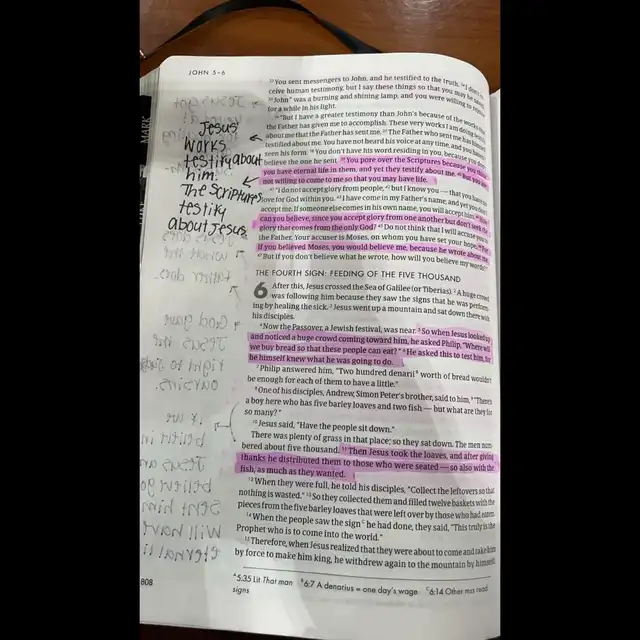 JOHN 5–6
MARK
Jesus'
works
testify about
him.
The Scriptures
testify
about Jesus.
³³ You sent messengers to John, and he testified to the truth. ³⁴ I don't
ceive human testimony, but I say these things so that you may be saved.
³⁵ John was a burning and shining lamp, and you were willing to rejoice
for a while in his light.
³⁶ "But I have a greater testimony than John's because of the works that
the Father has given me to accomplish. These very works I am doing
about me that the Father has sent me. ³⁷ The Father who sent me has himself
testified about me. You have not heard his voice at any time, and you haven't
seen his form. ³⁸ You don't have his word residing in you, because you don't
believe the one he sent. ³⁹ You pore over the Scriptures because you think
you have eternal life in them, and yet they testify about me. ⁴⁰ But you are
not willing to come to me so that you may have life.
⁴¹ "I do not accept glory from people, ⁴² but I know you — that you have no
love for God within you. ⁴³ I have come in my Father's name, and yet you don't
accept me. If someone else comes in his own name, you will accept him. ⁴⁴ How
can you believe, since you accept glory from one another but don't seek the
glory that comes from the only God? ⁴⁵ Do not think that I will accuse you to
the Father. Your accuser is Moses, on whom you have set your hope. ⁴⁶ For
if you believed Moses, you would believe me, because he wrote about me.
⁴⁷ But if you don't believe what he wrote, how will you believe my words?"
THE FOURTH SIGN: FEEDING OF THE FIVE THOUSAND
6 After this, Jesus crossed the Sea of Galilee (or Tiberias). ² A huge crowd
was following him because they saw the signs that he was performing
ing by healing the sick. ³ Jesus went up a mountain and sat down there with
his disciples.
⁴ Now the Passover, a Jewish festival, was near. ⁵ So when Jesus looked up
and noticed a huge crowd coming toward him, he asked Philip, "Where will
we buy bread so that these people can eat?" ⁶ He asked this to test him, for
he himself knew what he was going to do.
⁷ Philip answered him, "Two hundred denarii ᴮ worth of bread wouldn't
be enough for each of them to have a little."
⁸ One of his disciples, Andrew, Simon Peter's brother, said to him, ⁹ "There's
a boy here who has five barley loaves and two fish — but what are they for
so many?"
¹⁰ Jesus said, "Have the people sit down."
There was plenty of grass in that place; so they sat down. The men num-
bered about five thousand. ¹¹ Then Jesus took the loaves, and after giving
thanks he distributed them to those who were seated — so also with the
fish, as much as they wanted.
¹² When they were full, he told his disciples, "Collect the leftovers so that
nothing is wasted." ¹³ So they collected them and filled twelve baskets with the
pieces from the five barley loaves that were left over by those who had eaten.
¹⁴ When the people saw the sign ᶜ he had done, they said, "This truly is the
Prophet who is to come into the world."
¹⁵ Therefore, when Jesus realized that they were about to come and take him
by force to make him king, he withdrew again to the mountain by himself.
808
ᴬ 5:35 Lit That man ᴮ 6:7 A denarius = one day's wage ᶜ 6:14 Other mss read
signs